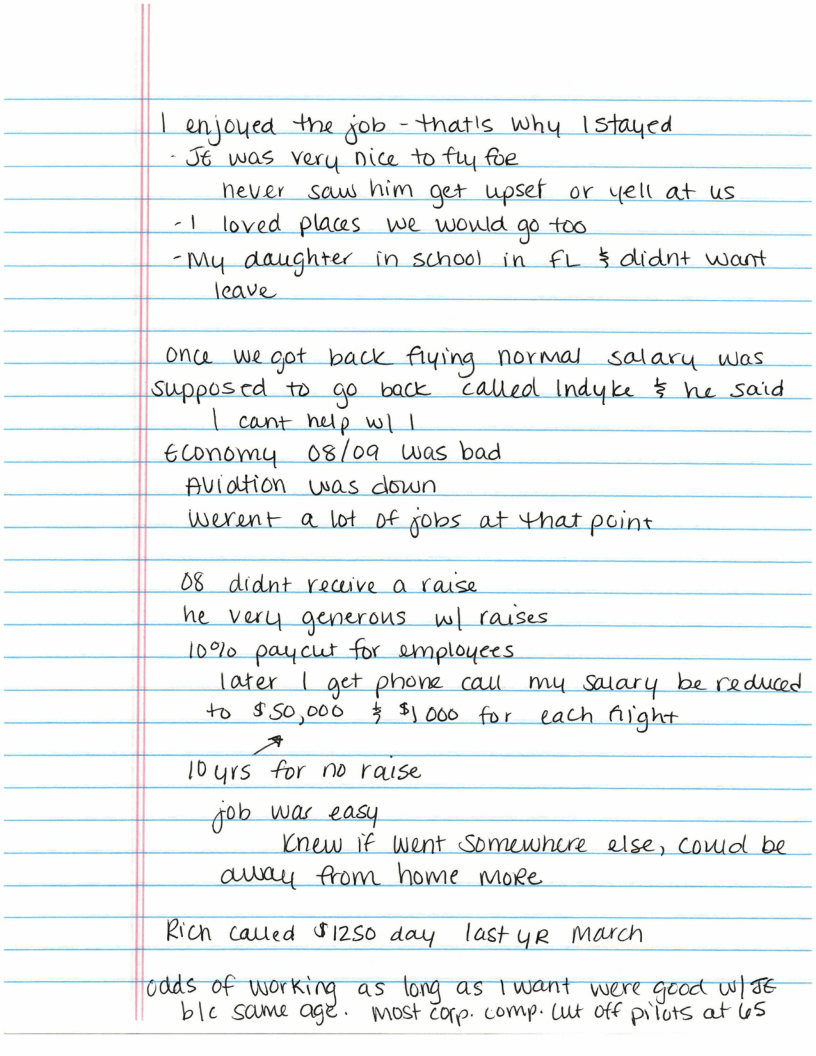 I enjoyed the job - that's why I stayed
- JE was very nice to fly foe
never saw him get upset or yell at us
- I loved places we would go too
- My daughter in school in FL & didnt want
leave
Once we got back flying normal salary was
supposed to go back called Indyke & he said
I cant help w/ I
Economy 08/09 was bad
Aviation was down
Werent a lot of jobs at that point
08 didnt receive a raise
he very generous w/ raises
10% paycut for employees
later I get phone call my salary be reduced
to $50,000 & $1000 for each flight
10 yrs for no raise
job was easy
Knew if went somewhere else, could be
away from home more
Rich called $1250 day last yr March
odds of working as long as I want were good w/ JE
b/c same age. Most corp. comp. cut off pilots at 65